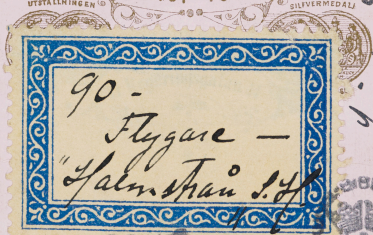 UTSTÄLLNINGEN
SILFVERMEDALJ
90 -
Flygare —
"Halmstrån S. H